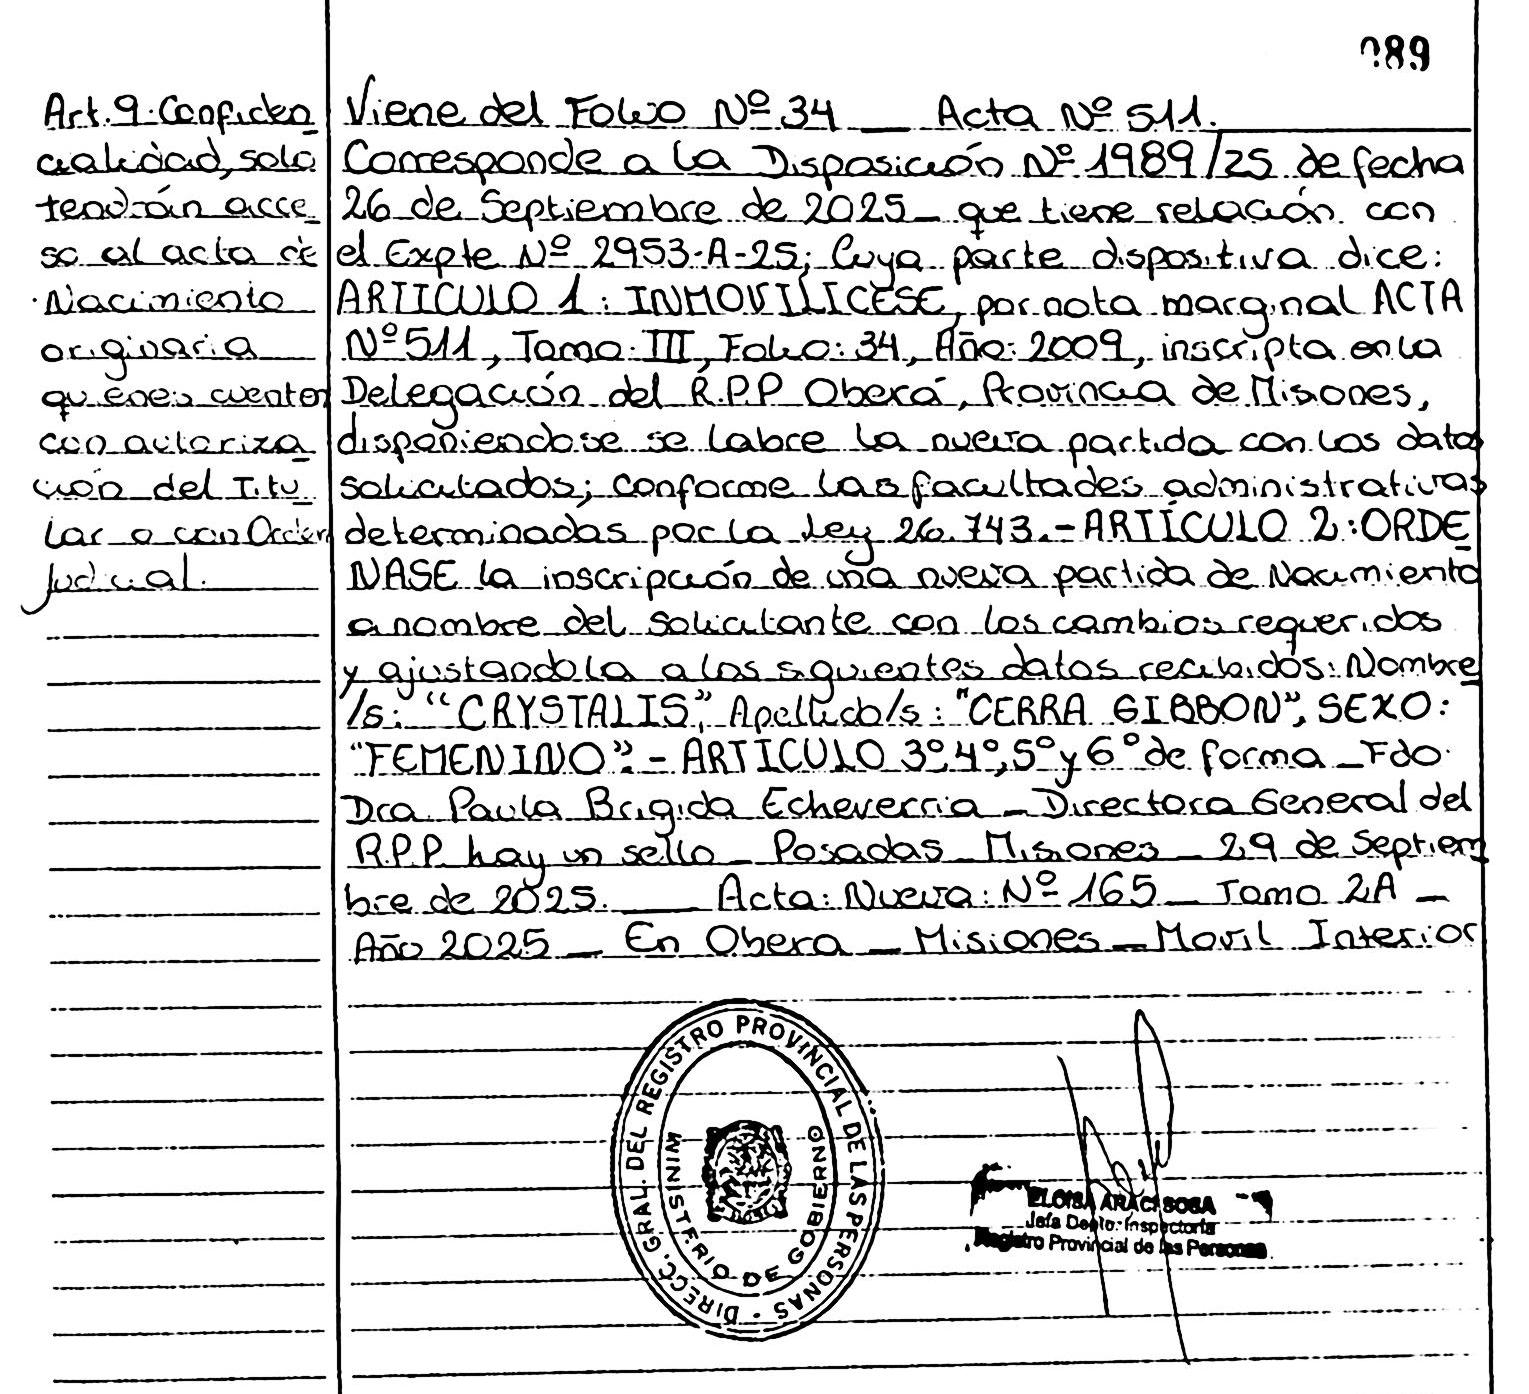 089
Art. 9. Confiden
cialidad, solo
tendrán acce
so al acta de
Nacimiento
originaria
quienes cuenten
con autoriza
ción del Titu
lar o con Orden
Judicial.
Viene del Folio Nº 34 __ Acta Nº 511.
Corresponde a la Disposición Nº 1989/25 de fecha
26 de Septiembre de 2025 _ que tiene relación con
el Expte Nº 2953-A-25; Cuya parte dispositiva dice:
ARTICULO 1: INMOVILICESE, por nota marginal ACTA
Nº 511, Tomo: III, Folio: 34, Año: 2009, inscripta en la
Delegación del R.P.P Oberá, Provincia de Misiones,
disponiendose se labre la nueva partida con los datos
solicitados; conforme las facultades administrativas
determinadas por la Ley 26.743.- ARTÍCULO 2: ORDE
NASE la inscripción de una nueva partida de Nacimiento
a nombre del solicitante con los cambios requeridos
y ajustandola a los siguientes datos recibidos: Nombre
/s: "CRYSTALIS", Apellido/s: "CERRA GIBBON", SEXO:
"FEMENINO".- ARTICULO 3º, 4º, 5º y 6º de forma _ Fdo.
Dra. Paula Brigida Echeverria _ Directora General del
R.P.P. hay un sello _ Posadas _ Misiones _ 29 de Septiem
bre de 2025. __ Acta: Nueva: Nº 165 _ Tomo 2A _
Año 2025 _ En Obera _ Misiones _ Movil Interior
DIRECC. GRAL. DEL REGISTRO PROVINCIAL DE LAS PERSONAS -
MINISTERIO DE GOBIERNO
ELOISA ARACI SOSA
Jefa Depto. Inspectoria
Registro Provincial de las Personas